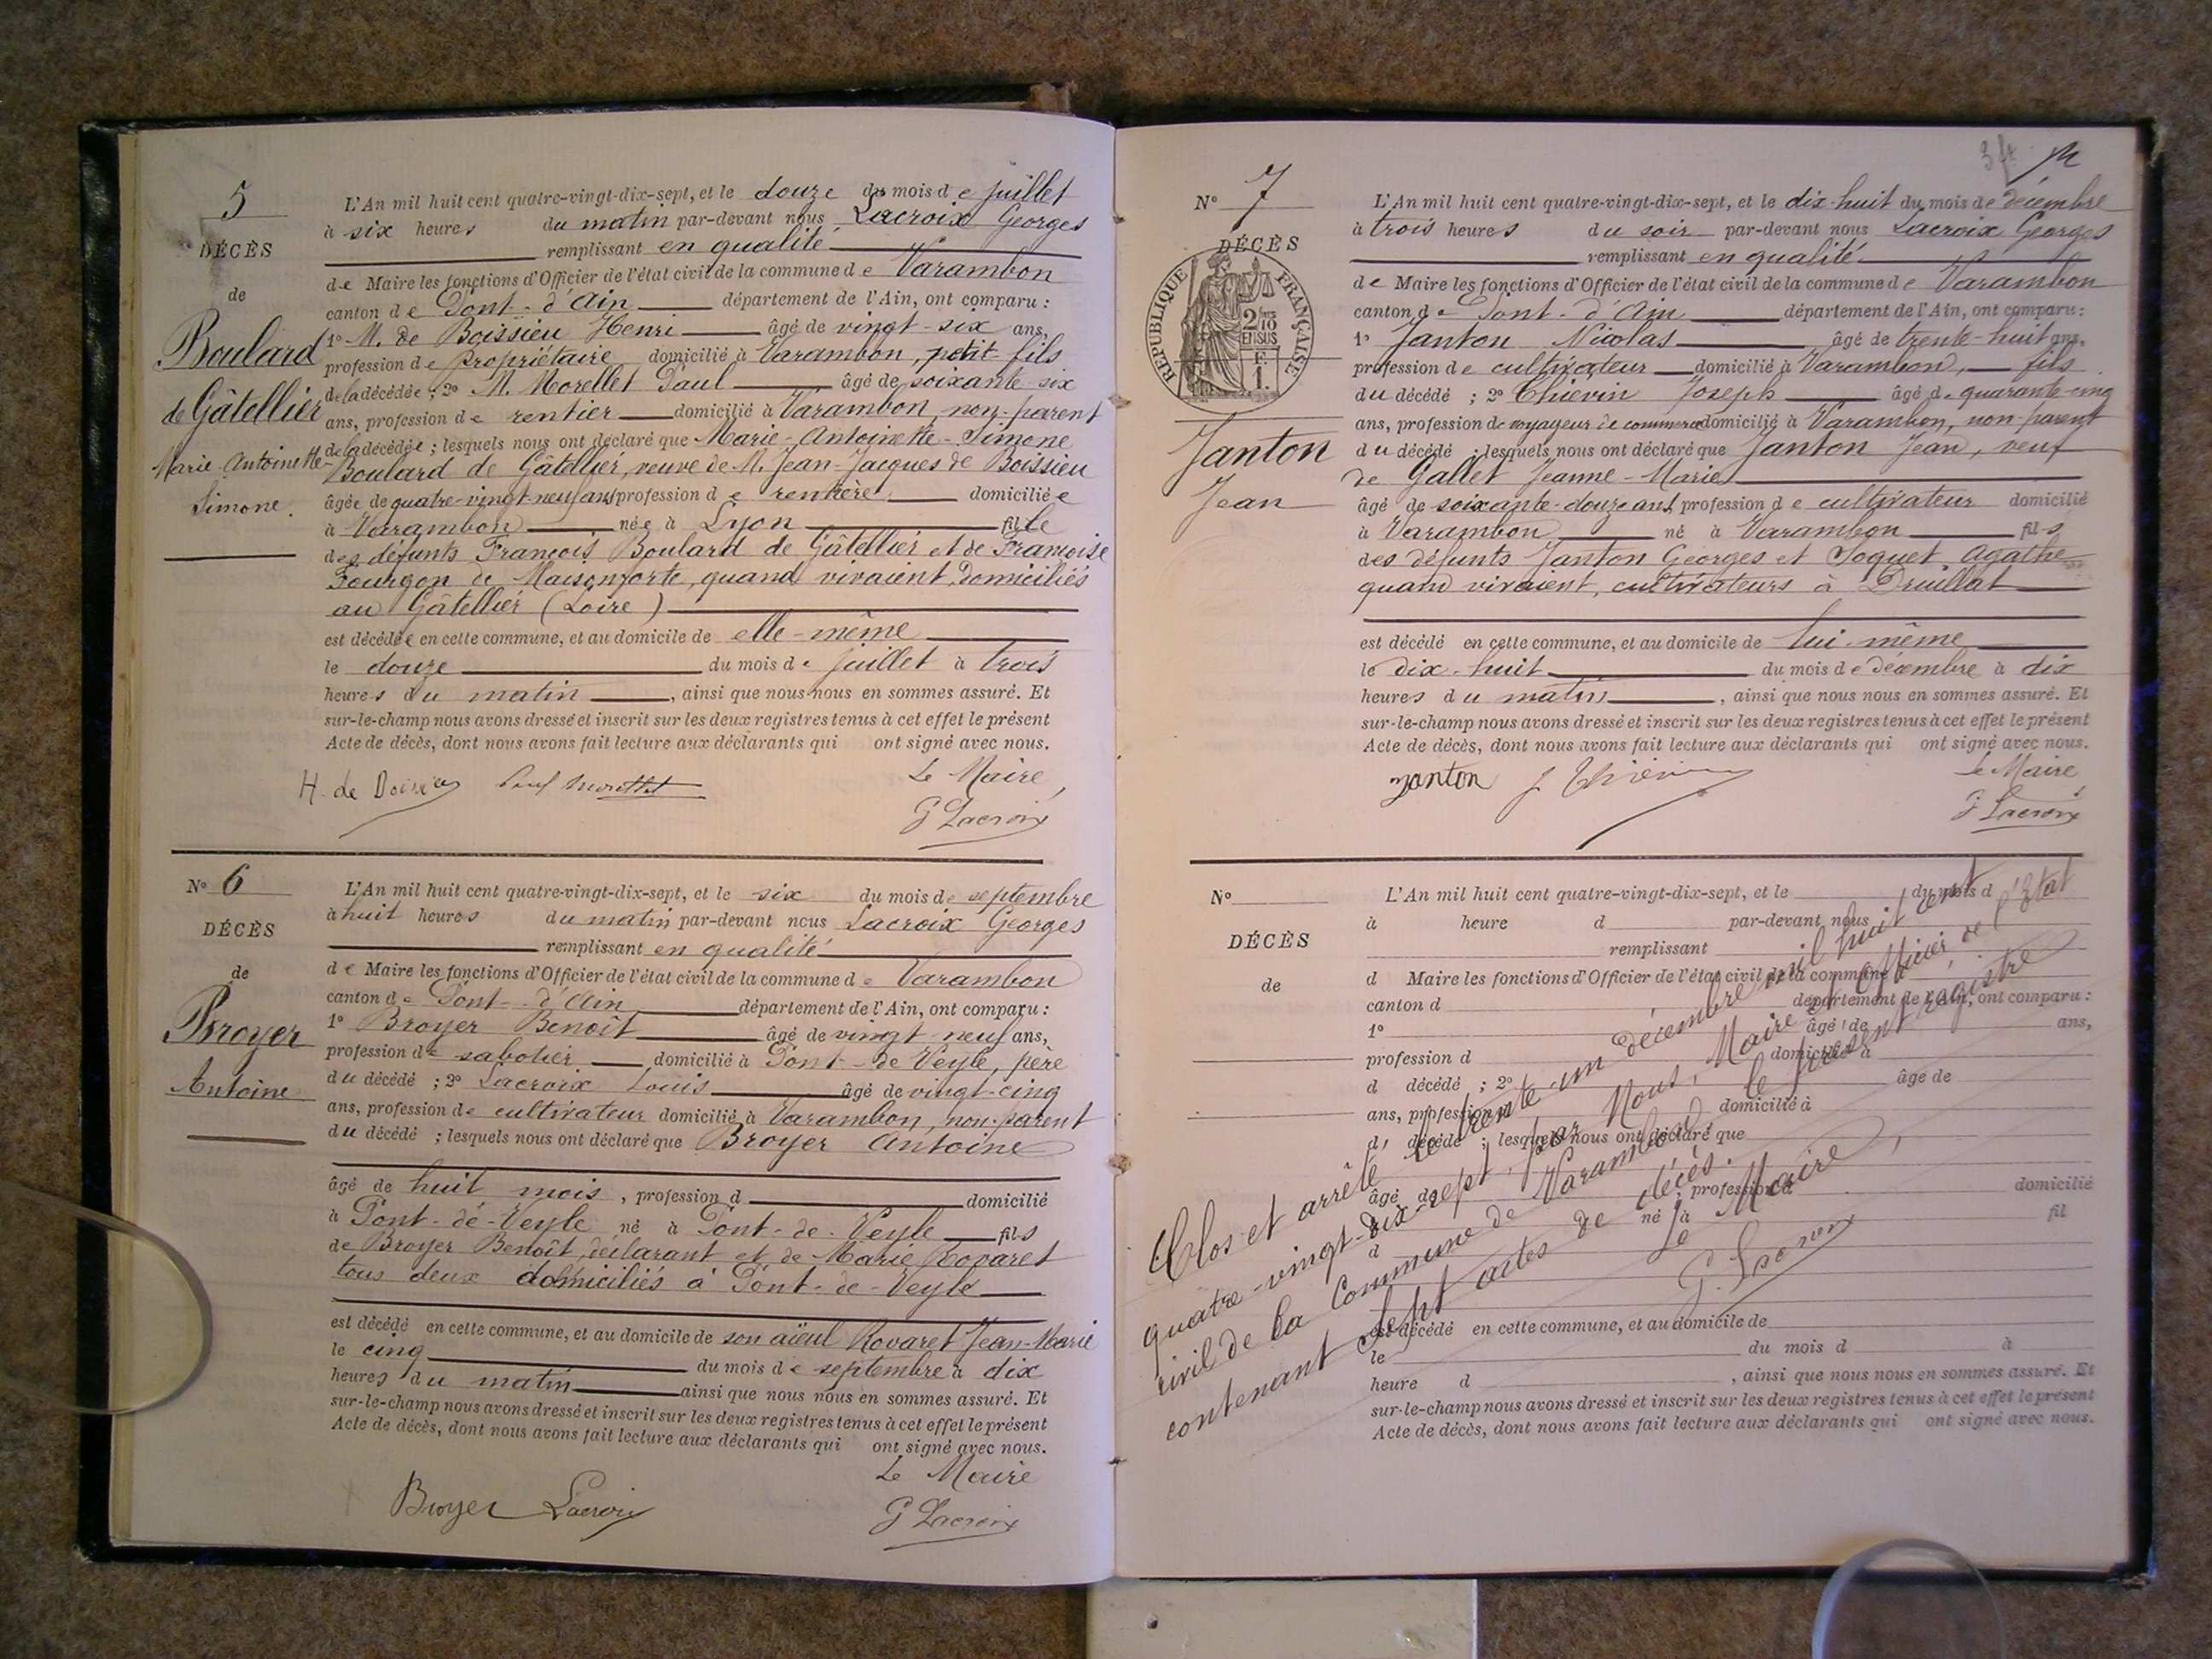 5
DÉCÈS
de
Boulard
de Gâtellier
Marie-Antoinette-
Simone.
L'An mil huit cent quatre-vingt-dix-sept, et le douze du mois de juillet
à six heures du matin par-devant nous Lacroix Georges
remplissant en qualité
de Maire les fonctions d'Officier de l'état civil de la commune de Varambon
canton de Pont-d'Ain département de l'Ain, ont comparu :
1º M. de Boissieu Henri âgé de vingt-six ans,
profession de propriétaire domicilié à Varambon, petit-fils
de la décédée ; 2º M. Morellet Paul âgé de soixante-six
ans, profession de rentier domicilié à Varambon, non-parent
de la décédée ; lesquels nous ont déclaré que Marie-Antoinette-Simone
Boulard de Gâtellier, veuve de M. Jean-Jacques de Boissieu
âgée de quatre-vingt-neuf ans profession de rentière domiciliée
à Varambon née à Lyon fille
des défunts François Boulard de Gâtellier et de Françoise
Fourgon de Maisonforte, quand vivaient, domiciliés
au Gâtellier (Loire)
est décédée en cette commune, et au domicile de elle-même
le douze du mois de juillet à trois
heures du matin, ainsi que nous nous en sommes assuré. Et
sur-le-champ nous avons dressé et inscrit sur les deux registres tenus à cet effet le présent
Acte de décès, dont nous avons fait lecture aux déclarants qui ont signé avec nous.
Le Maire,
H. de Boissieu Paul Morellet
G Lacroix
Nº 6
DÉCÈS
de
Broyer
Antoine
L'An mil huit cent quatre-vingt-dix-sept, et le six du mois de septembre
à huit heures du matin par-devant nous Lacroix Georges
remplissant en qualité
de Maire les fonctions d'Officier de l'état civil de la commune de Varambon
canton de Pont-d'Ain département de l'Ain, ont comparu :
1º Broyer Benoît âgé de vingt-neuf ans,
profession de sabotier domicilié à Pont-de-Veyle, père
du décédé ; 2º Lacroix Louis âgé de vingt-cinq
ans, profession de cultivateur domicilié à Varambon, non-parent
du décédé ; lesquels nous ont déclaré que Broyer Antoine
âgé de huit mois, profession d domicilié
à Pont-de-Veyle né à Pont-de-Veyle fils
de Broyer Benoît, déclarant et de Marie Rovaret
tous deux domiciliés à Pont-de-Veyle
est décédé en cette commune, et au domicile de son aïeul Rovaret Jean-Marie
le cinq du mois de septembre à dix
heures du matin ainsi que nous nous en sommes assuré. Et
sur-le-champ nous avons dressé et inscrit sur les deux registres tenus à cet effet le présent
Acte de décès, dont nous avons fait lecture aux déclarants qui ont signé avec nous.
Le Maire
Broyer Lacroix
G Lacroix
Nº 7
DÉCÈS
RÉPUBLIQUE FRANÇAISE
2/10 EN SUS
F.
1.
Janton
Jean
L'An mil huit cent quatre-vingt-dix-sept, et le dix-huit du mois de décembre
à trois heures du soir par-devant nous Lacroix Georges
remplissant en qualité
de Maire les fonctions d'Officier de l'état civil de la commune de Varambon
canton de Pont-d'Ain département de l'Ain, ont comparu :
1º Janton Nicolas âgé de trente-huit ans,
profession de cultivateur domicilié à Varambon, fils
du décédé ; 2º Thievin Joseph âgé de quarante-cinq
ans, profession de voyageur de commerce domicilié à Varambon, non-parent
du décédé ; lesquels nous ont déclaré que Janton Jean, veuf
de Gallet Jeanne-Marie
âgé de soixante-douze ans, profession de cultivateur domicilié
à Varambon né à Varambon fils
des défunts Janton Georges et Joguet Agathe
quand vivaient, cultivateurs à Druillat
est décédé en cette commune, et au domicile de lui-même
le dix-huit du mois de décembre à dix
heures du matin, ainsi que nous nous en sommes assuré. Et
sur-le-champ nous avons dressé et inscrit sur les deux registres tenus à cet effet le présent
Acte de décès, dont nous avons fait lecture aux déclarants qui ont signé avec nous.
Le Maire
Janton J Thiévin
G Lacroix
Nº
DÉCÈS
de
L'An mil huit cent quatre-vingt-dix-sept, et le du mois d
à heure d par-devant nous
remplissant
d Maire les fonctions d'Officier de l'état civil de la commune d
canton d département de l'Ain, ont comparu :
1º âgé de ans,
profession d domicilié à
d décédé ; 2º âgé de
ans, profession d domicilié à
d décédé ; lesquels nous ont déclaré que
âgé de , profession d domicilié
à né à fil
d
est décédé en cette commune, et au domicile de
le du mois d à
heure d , ainsi que nous nous en sommes assuré. Et
sur-le-champ nous avons dressé et inscrit sur les deux registres tenus à cet effet le présent
Acte de décès, dont nous avons fait lecture aux déclarants qui ont signé avec nous.
Clos et arrêté le trente-un décembre mil huit cent
quatre-vingt-dix-sept, par Nous, Maire et Officier de l'Etat
civil de la Commune de Varambon, le présent registre
contenant sept actes de décès.
Le Maire,
G. Lacroix